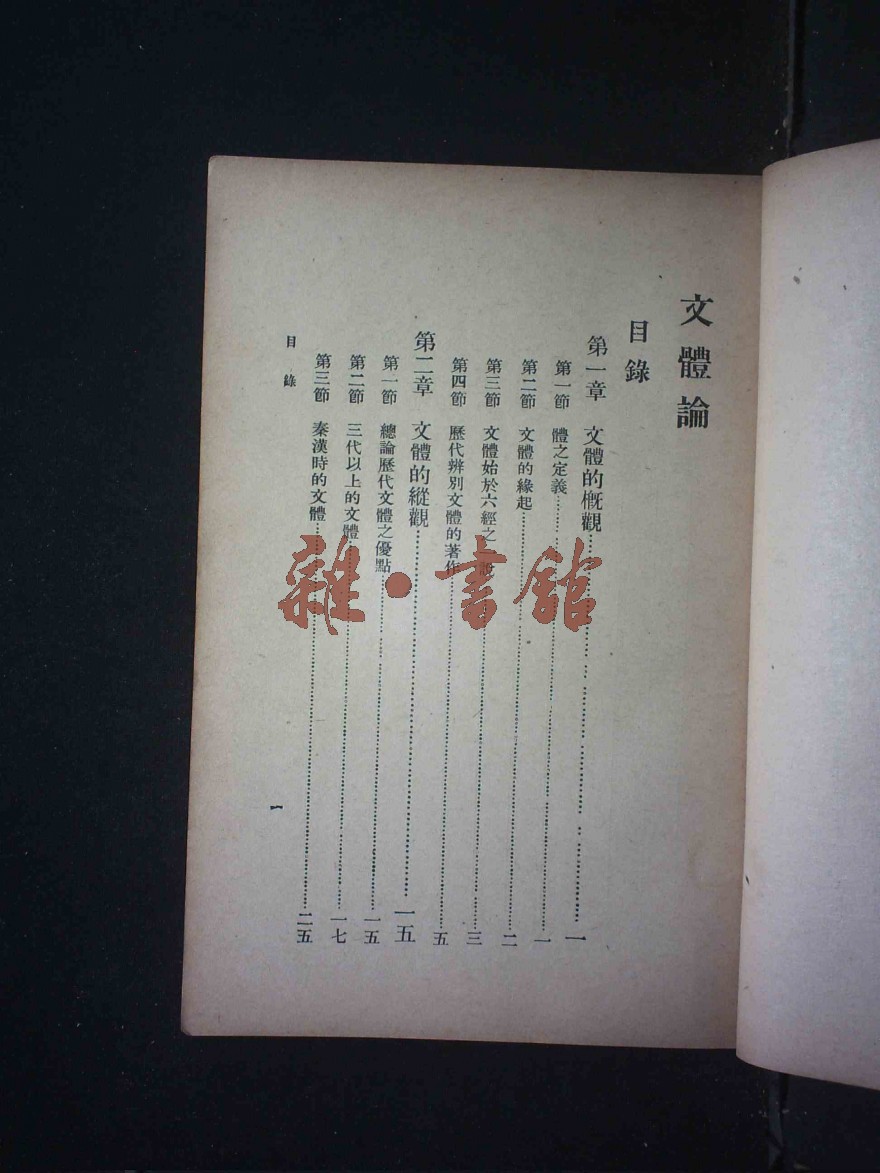 文體論
目錄
第一章 文體的概觀……一
第一節 體之定義……一
第二節 文體的緣起……二
第三節 文體始於六經之一說……三
第四節 歷代辨別文體的著作……五
第二章 文體的縱觀……一五
第一節 總論歷代文體之優點……一五
第二節 三代以上的文體……一七
第三節 秦漢時的文體……二五
目錄
一
雜·書館